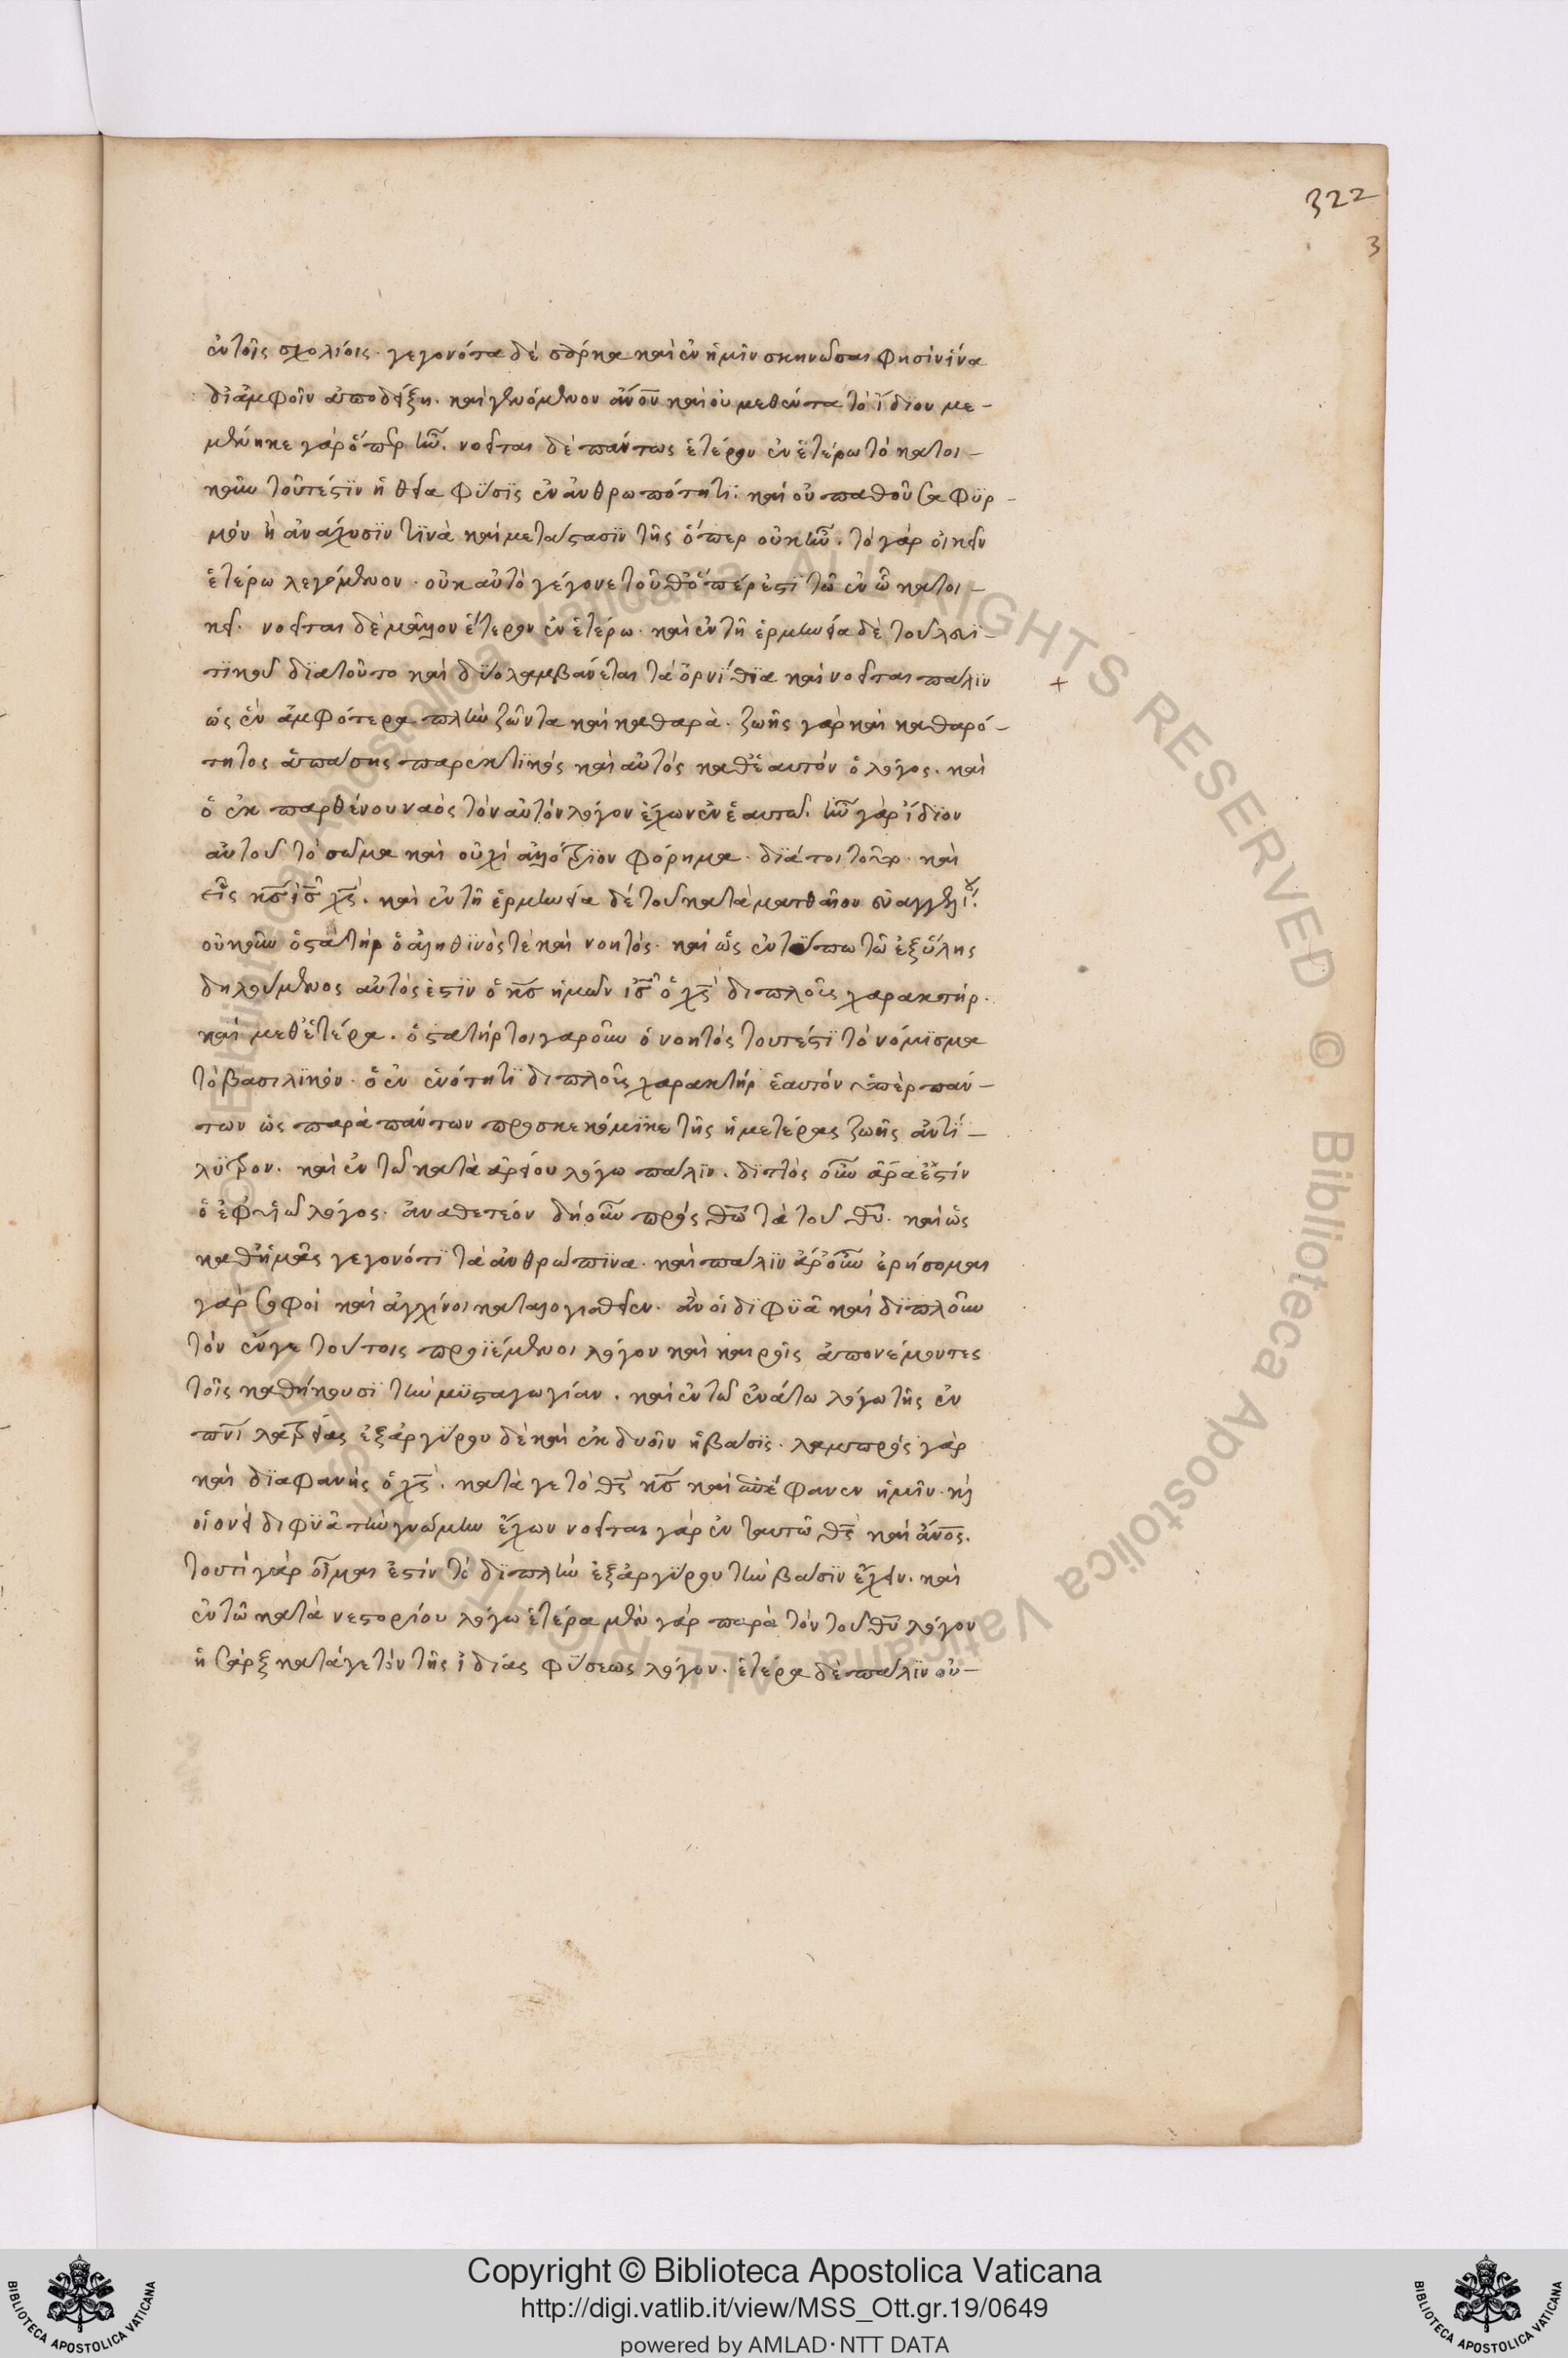 322
3
ἐν τοῖς σχολίοις. γεγονότα δὲ σάρκα καὶ ἐν ἡμῖν σκηνῶσαι φησὶν ἵνα
δι ἀμφοῖν ἀποδείξη. καὶ γενόμενον ἄνον καὶ οὐ μεθέντα τὸ ἴδιον με-
μένηκε γὰρ ὅπερ ἦν. νοεῖται δὲ πάντως ἑτέρου ἐν ἑτέρω τὸ κατοι-
κοῦν τοῦτέστιν ἡ θεία φύσις ἐν ἀνθρωπότητι. καὶ οὐ παθοῦσα φϋρ-
μὸν ἢ ἀνάχυσιν τινὰ καὶ μετάστασιν τῆς ὅπερ οὐκ ἦν. τὸ γὰρ οἰκεῖν
ἑτέρω λεγόμενον. οὐκ αὐτὸ γέγονε τοῦθ ὅπέρ ἐστι τῶ ἐν ὧ κατοι-
κεῖ. νοεῖται δὲ μᾶλλον ἕτερον ἐν ἑτέρω. καὶ ἐν τῆ ἑρμηνεία δὲ τοῦ λευϊ-
τικοῦ διατοῦτο καὶ δύο λαμβάνεται τὰ ὀρνίθια καὶ νοεῖται πάλιν
ὡς ἓν ἀμφότερα πλὴν ζῶντα καὶ καθαρὰ. ζωῆς γὰρ καὶ καθαρό-
τητος ἁπάσης παρεκτικὸς καὶ αὐτὸς καθ ἑαυτὸν ὁ λόγος. καὶ
ὁ ἐκ παρθένου ναὸς τὸν αὐτὸν λόγον ἔχων ἐν ἑαυτῶ. ἦν γὰρ ἴδιον
αὐτοῦ τὸ σῶμα καὶ οὐχὶ ἀλλότριον φόρημα. διάτοι τοῦτο καὶ
εἷς κς ις χς. καὶ ἐν τῆ ἑρμηνεία δὲ τοῦ κατὰ ματθαῖον εὐαγγελίου.
οὐκοῦν ὁ στατὴρ ὁ ἀληθινὸς τὲ καὶ νοητὸς. καὶ ὡς ἐν τύπω τῶ ἐξ ὕλης
δηλούμενος αὐτός ἐστιν ὁ κς ἡμῶν ις ὁ χς διπλοῦς χαρακτήρ.
καὶ μεθ ἕτέρα. ὁ στατὴρ τοιγαροῦν ὁ νοητὸς τουτέστι τὸ νόμισμα
τὸ βασιλικὸν. ὁ ἐν ἑνότητι διπλοῦς χαρακτήρ ἑαυτὸν ὑπὲρ πάν-
των ὡς παρὰ πάντων προσκεκόμικε τῆς ἡμετέρας ζωῆς ἀντί-
λυτρον. καὶ ἐν τῶ κατὰ ἀρείου λόγω πάλιν. διττὸς οὖν ἄρα ἐστὶν
ὁ ἐφ υἱῶ λόγος. ἀναθετέον δὴ οὖν πρὸς θν τὰ τοῦ θυ. καὶ ὡς
καθ ἡμᾶς γεγονότι τὰ ἀνθρώπινα. καὶ πάλιν ἆρ οὖν ἐρήσομαι
γὰρ σοφοὶ καὶ ἀγχίνοι καταλογισθεῖεν. ἂν οἱ διφυᾶ καὶ διπλοῦν
τὸν ἐνγε τούτοις προϊέμενοι λόγον καὶ καιροῖς ἀπονέμοντες
τοῖς καθήκουσι τὴν μυσταγωγίαν. καὶ ἐν τῶ ἐνάτω λόγω τῆς ἐν
πνι λατρείας ἐξ ἀργύρου δὲ καὶ ἐκ δυοῖν ἡ βάσις. λαμπρὸς γὰρ
καὶ διαφανὴς ὁ χς. κατὰ γε τὸ θς κς καὶ ἐπέφανεν ἡμῖν. καὶ
οἱονεὶ διφυᾶ τὴν γνώμην ἔχων νοεῖται γὰρ ἐν ταυτῶ θς καὶ ἄνος.
τουτὶ γὰρ οἶμαι ἐστὶν τὸ διπλὴν ἐξ ἀργύρου τὴν βάσιν ἔχειν. καὶ
ἐν τῶ κατὰ νεστορίου λόγω ἑτέρα μὲν γὰρ παρὰ τὸν τοῦ θυ λόγον
ἡ σὰρξ κατάγε τὸν τῆς ἰδίας φύσεως λόγον. ἑτέρα δὲ πάλιν οὐ-
Copyright © Biblioteca Apostolica Vaticana
http://digi.vatlib.it/view/MSS_Ott.gr.19/0649
powered by AMLAD·NTT DATA